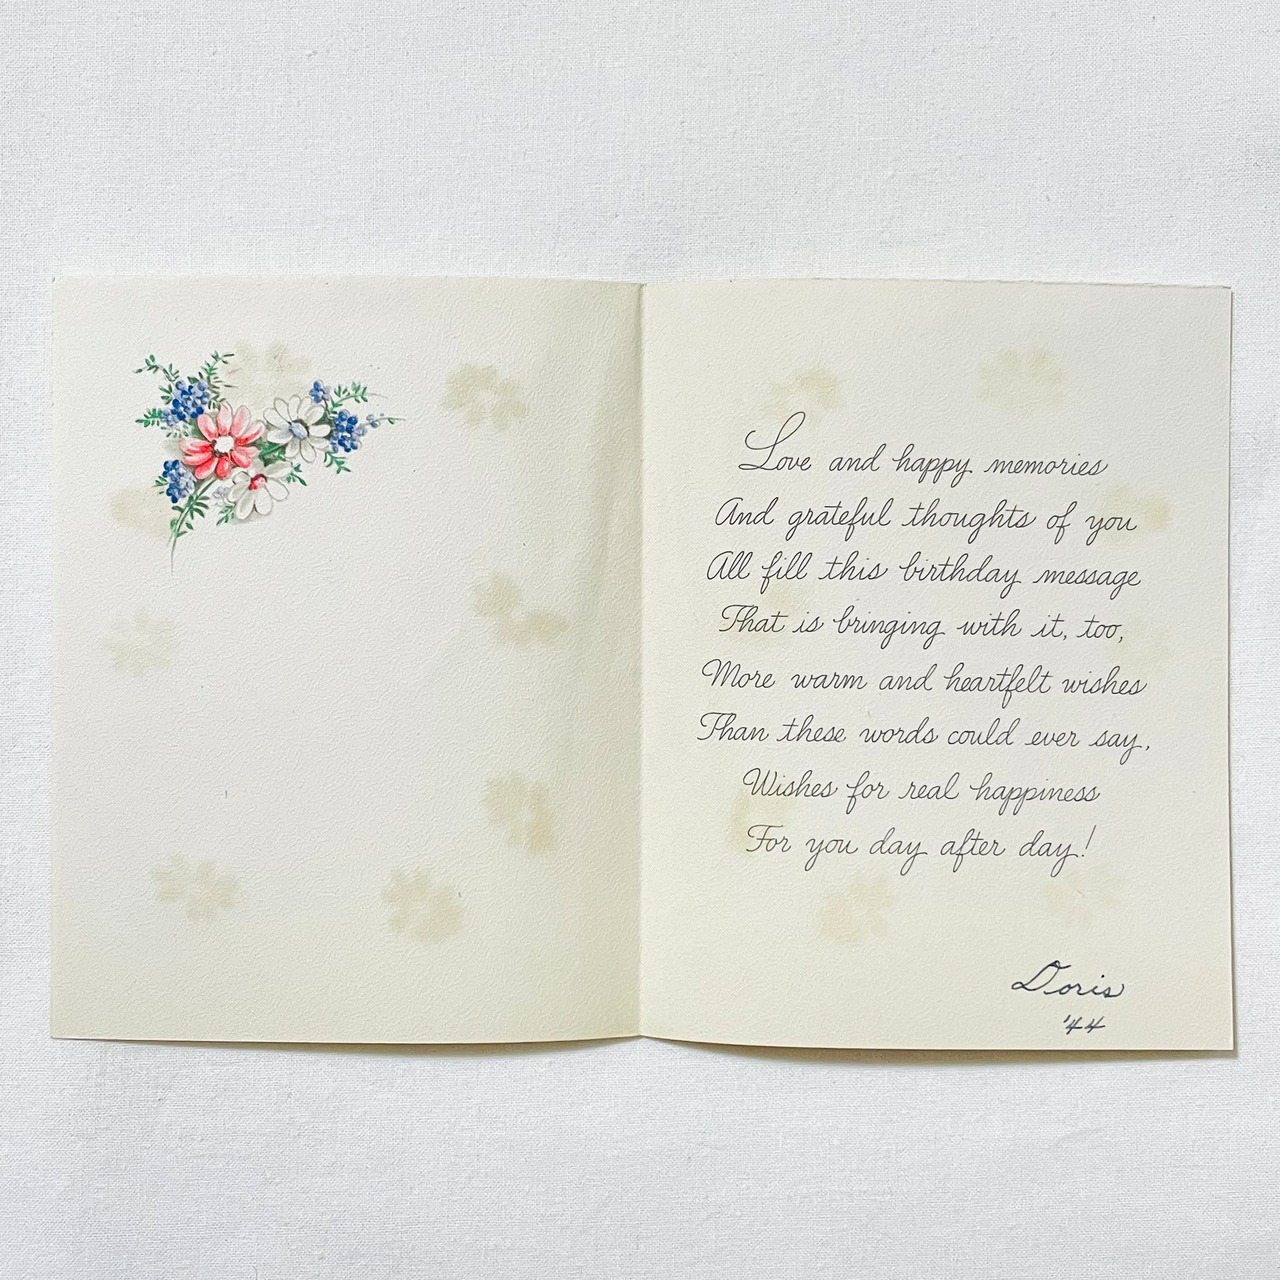 Love and happy memories
And grateful thoughts of you
All fill this birthday message
That is bringing with it, too,
More warm and heartfelt wishes
Than these words could ever say,
Wishes for real happiness
For you day after day!
Doris
'44